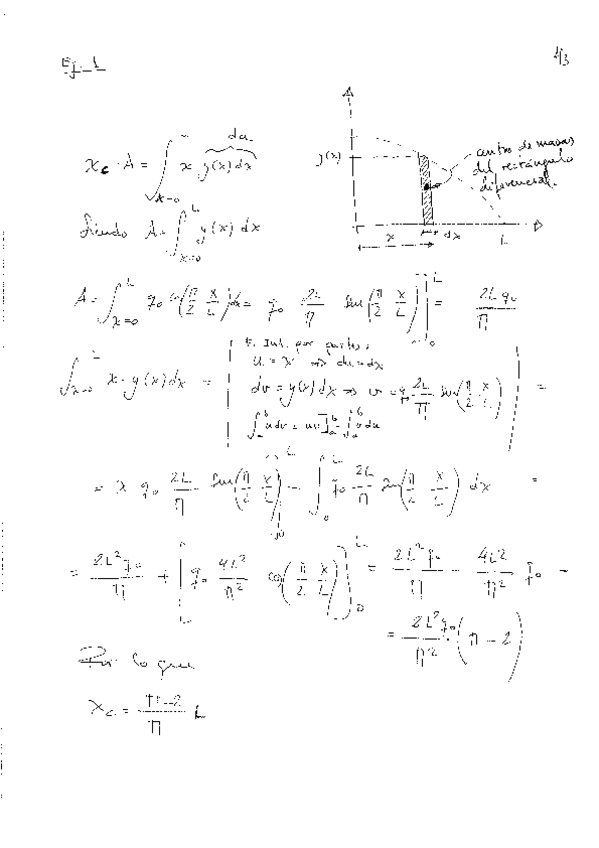 Ej. 1
1/3
x_c · A = ∫_{x=0}^{L} x y(x) dx
da
Siendo A = ∫_{x=0}^{L} y(x) dx
y(x)
centro de masas
del rectángulo
diferencial.
x
dx
L
A = ∫_{x=0}^{L} q₀ cos(π/2 x/L) dx = q₀ 2L/π sen(π/2 x/L)]₀^L = 2L q₀/π
∫_{x=0}^{L} x · y(x) dx = | Int. por partes: u = x ⇒ du = dx
dv = y(x) dx ⇒ v = q₀ 2L/π sen(π/2 x/L) | =
∫_a^b u dv = uv]_a^b - ∫_a^b v du
= x q₀ 2L/π sen(π/2 x/L)]₀^L - ∫₀^L q₀ 2L/π sen(π/2 x/L) dx =
= 2L² q₀/π + [q₀ 4L²/π² cos(π/2 x/L)]₀^L = 2L² q₀/π - 4L²/π² q₀ =
= 2L² q₀/π² (π - 2)
Por lo que
x_c = π-2/π L